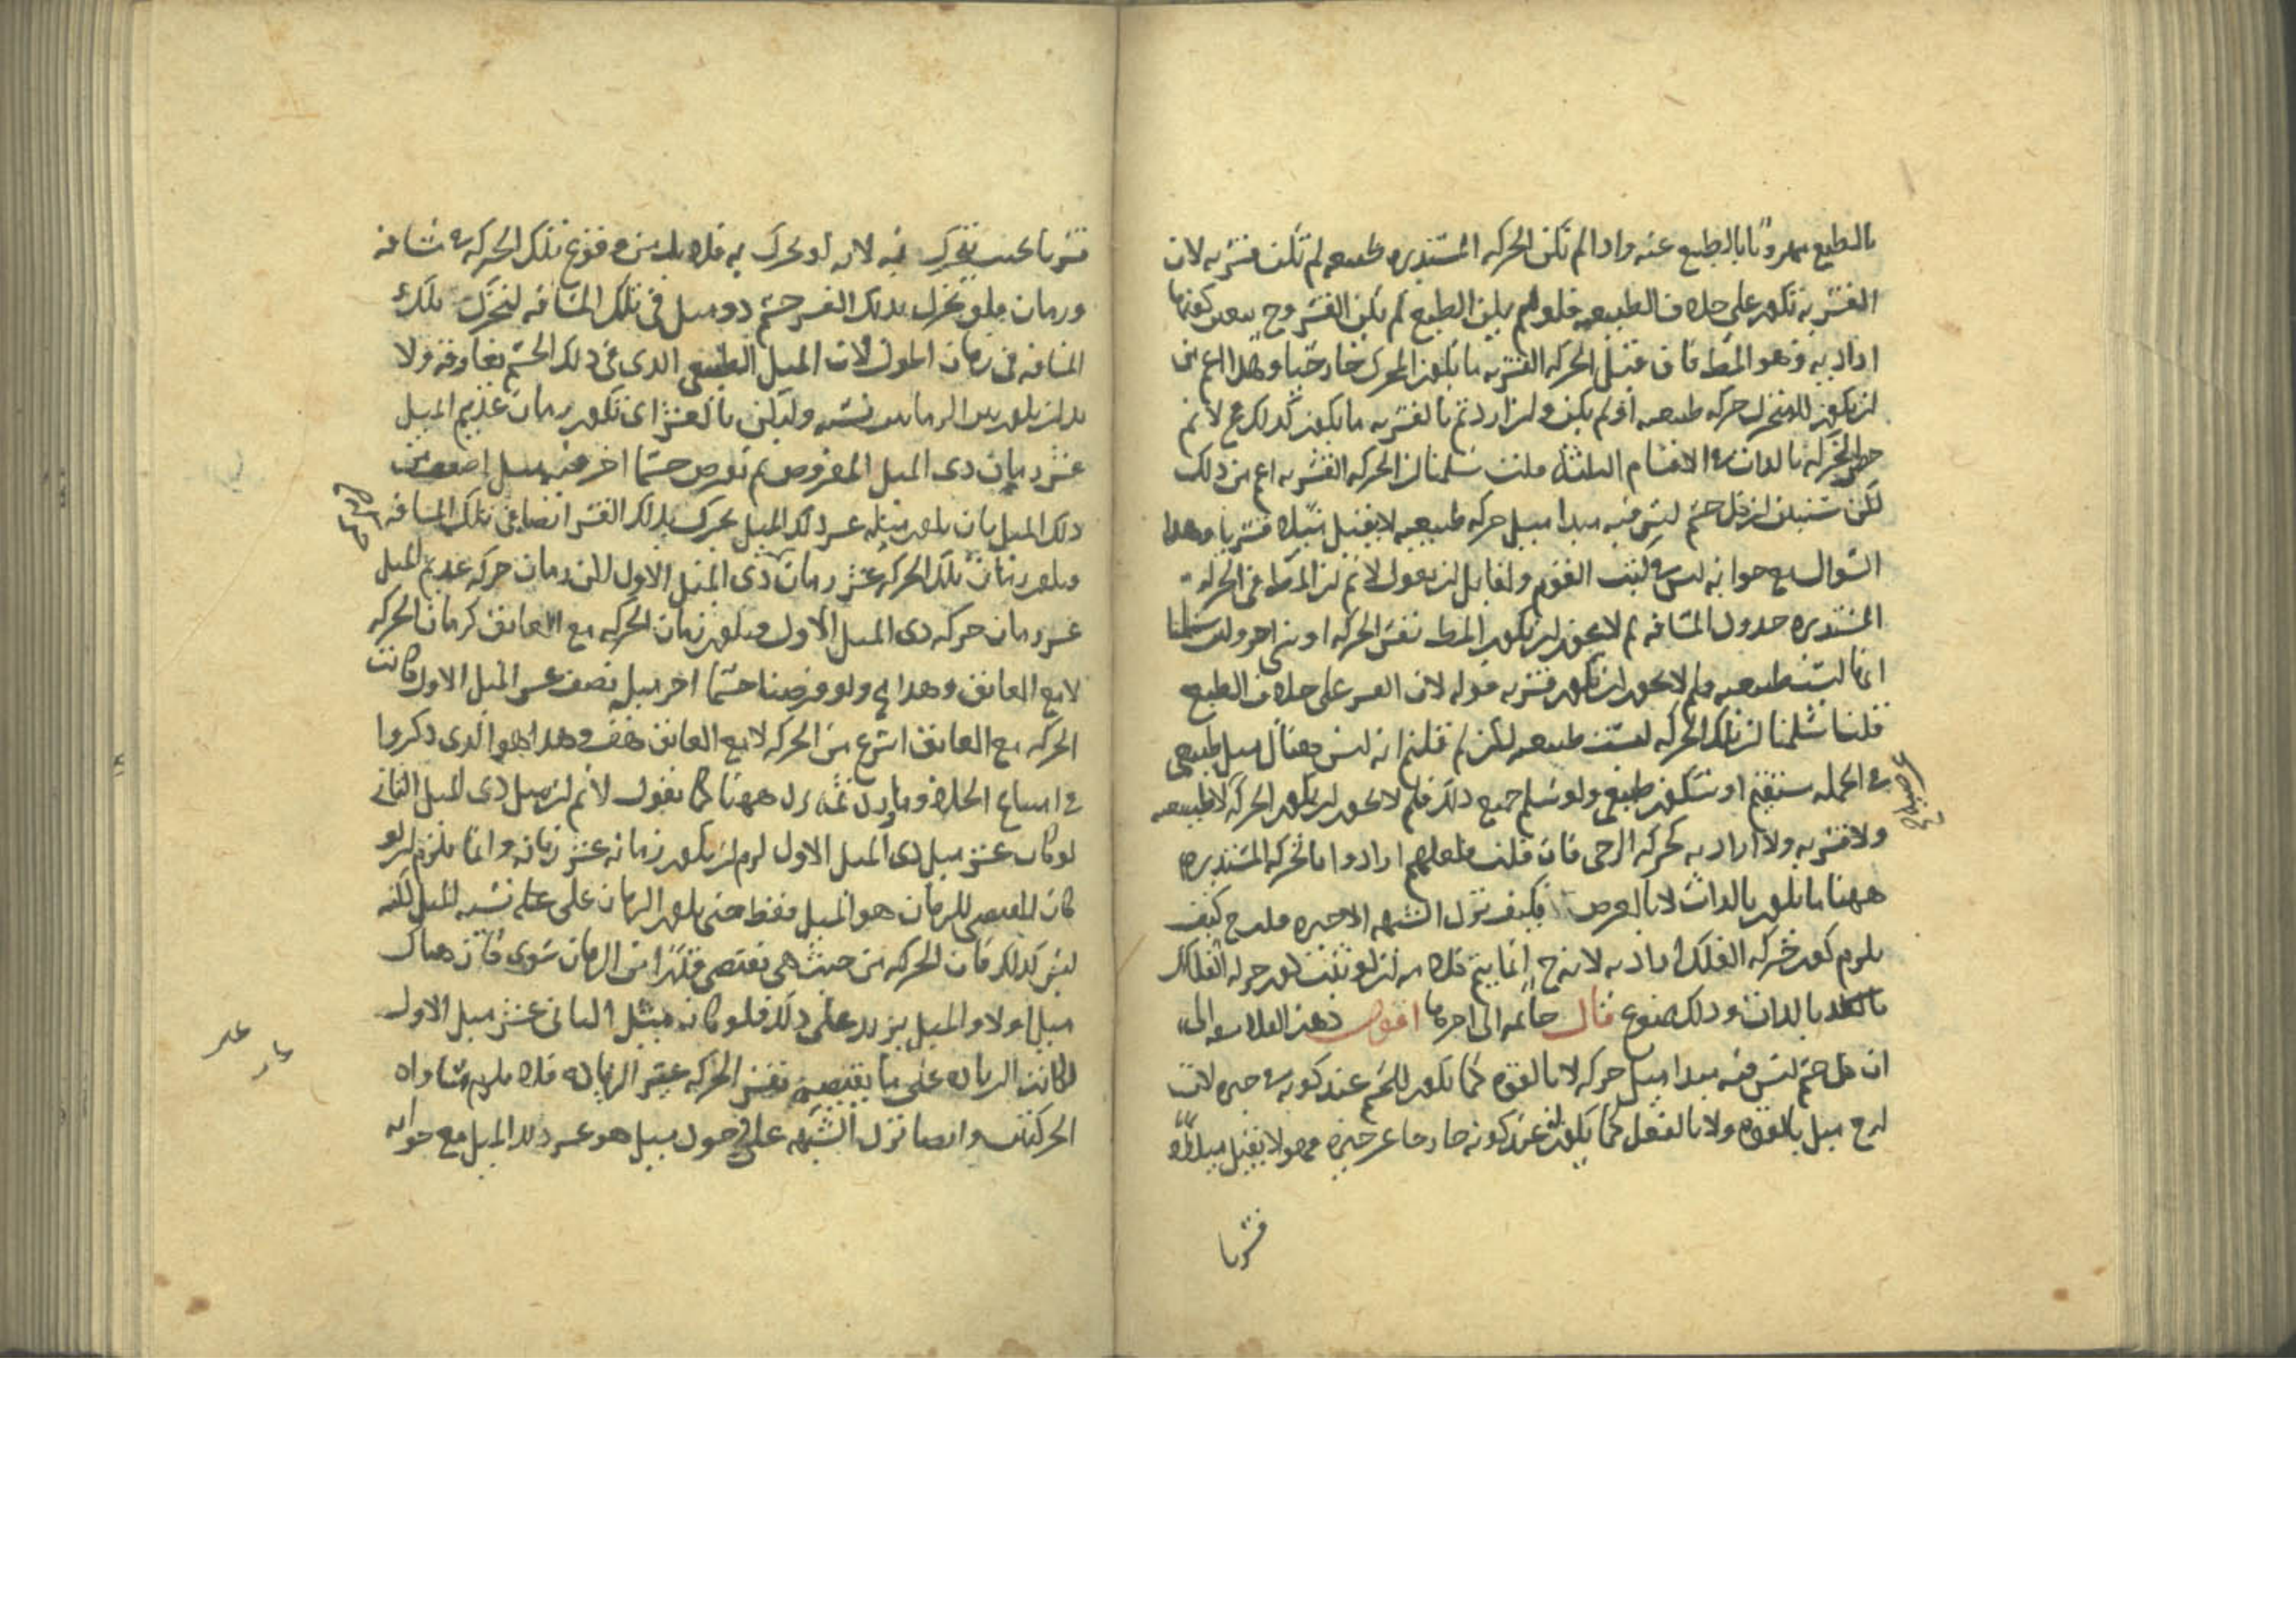 بالطبع مهروبا بالطبع عنه واذا لم تكن الحركه المستديره طبيعيه لم تكن قسريه لان
القسريه تكون على خلاف الطبيعيه فلو لم يكن الطبع لم يكن القسر وح يتعين كونها
اراديه وهو المط فان قيل الحركه القسريه ما يكون المحرك خارجيا وهذا اعم من
ان يكون للمتحرك حركه طبيعيه اولم يكن وان اردتم بالقسريه ما يكون كذلك فلانم
حصر الحركه بالذات في الاقسام الثلثه قلت سلمنا ان الحركه القسريه اعم من ذلك
لكن سنبين ان كل جسم ليس فيه مبدا ميل حركه طبيعيه لا يقبل ميلا قسريا وهذا
السوال مع جوابه ليس في كتب القوم ولقايل ان يقول لانم ان المط في الحركه
المستديره حدود المسافه لم لا يجوز ان يكون المط نفس الحركه او شي اخر ولين سلمنا
انها ليست طبيعيه فلم لا يجوز ان تكون قسريه قوله لان القسر على خلاف الطبع
قلنا سلمنا ان تلك الحركه ليست طبيعيه لكن لم قلتم انه ليس هناك ميل طبيعي
في الجمله مستقيم او سكون طبيعي ولو سلم جميع ذلك فلم لا يجوز ان يكون الحركه لا طبيعيه
ولا قسريه ولا اراديه كحركه الرحى فان قلت فلعلهم ارادوا بالحركه المستديره
ههنا ما يكون بالذات لا بالعرض فكيف تزل الشبهه الاخيره قلت ح كيف
يلزم كون حركه الفلك اراديه لانه ح انما يتم ذلك ان لو ثبت كون حركه الفلك
بالذات وذلك ممنوع قال خاتمه الى اخرها اقول ذهن الفلاسفه الى
ان كل جسم ليس فيه مبدا ميل حركه لا بالقوه كما يكون للجسم عند كونه في حيزه لان
له ح ميل بالقوه ولا بالفعل كما يكون له عند كونه خارجا عن حيزه فهو لا يقبل ميلا
قسريا
قسريا بحيث يتحرك فيه لانه لو تحرك به فلا بد من وقوع تلك الحركه في مسافه
وزمان فلو تحرك بذلك القسر جسم ذو ميل في تلك المسافه ليتحرك تلك
المسافه في زمان اطول لان الميل الطبيعي الذي في ذلك الجسم يعاوقه ولا
بد ان يكون بين الزمانين نسبه وليكن بالعشر اي يكون زمان عديم الميل
عشر زمان ذي الميل المفروض ثم نفرض جسما اخر فيه ميل اضعف من
ذلك الميل بان يكون ميله عشر ذلك الميل تحرك بذلك القسر ايضا في تلك المسافه
فيكون زمان تلك الحركه عشر زمان ذي الميل الاول لكن زمان حركه عديم الميل
عشر زمان حركه ذي الميل الاول فيكون زمان الحركه مع العائق كزمان الحركه
لا مع العائق وهذا مح ولو فرضنا جسما اخر ميله نصف عشر الميل الاول كانت
الحركه مع العائق اسرع من الحركه لا مع العائق هف وهذا هو الذي ذكروا
في امتناع الخلا وما يرد ثمه يرد ههنا كما نقول لانم ان ميل ذي الميل الثاني
لو كان عشر ميل ذي الميل الاول لزم ان يكون زمانه عشر زمانه وانما يلزم ان لو
كان المقتضي للزمان هو الميل فقط حتى يكون الزمان على نسبه الميل لكنه
ليس كذلك فان الحركه من حيث هي تقتضي قدرا من الزمان سوى كان هناك
ميل اولا والميل يزيد على ذلك فلو كان ميل الثاني عشر ميل الاول
لكانت الزياده على ما يقتضيه نفس الحركه عشر الزياده فلا يلزم تساواه
الحركتين وايضا تزل الشبهه على في حول ميل هو عشر ذلك الميل مع جوابه